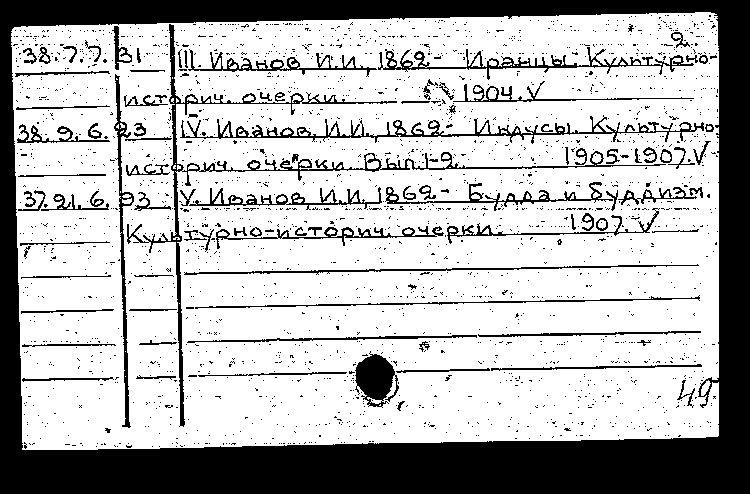 2.
38.7.7.31 III. Иванов, И.И., 1862- Иранцы. Культурно-
историч. очерки. 1904. V
38.9.6.23 IV. Иванов, И.И., 1862- Индусы. Культурно-
историч. очерки. Вып.1-2. 1905-1907. V
37.21.6.93 V. Иванов, И.И., 1862- Будда и буддизм.
Культурно-историч. очерки. 1907. V
49